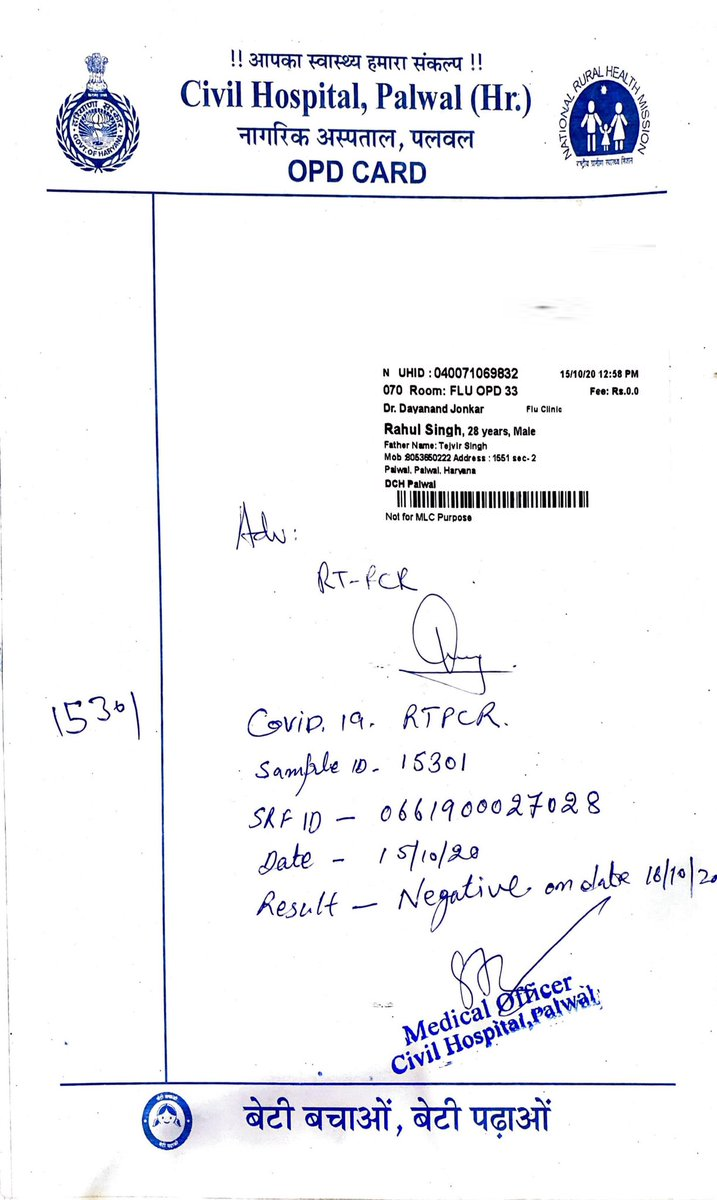 !! आपका स्वास्थ्य हमारा संकल्प !!
Civil Hospital, Palwal (Hr.)
नागरिक अस्पताल, पलवल
OPD CARD
हरियाणा सरकार
GOVT. OF HARYANA
NATIONAL RURAL HEALTH MISSION
राष्ट्रीय ग्रामीण स्वास्थ्य मिशन
N UHID : 040071069832 15/10/20 12:58 PM
070 Room: FLU OPD 33 Fee: Rs.0.0
Dr. Dayanand Jonkar Flu Clinic
Rahul Singh, 28 years, Male
Father Name: Tejvir Singh
Mob :8053650222 Address : 1551 sec- 2
Palwal, Palwal, Haryana
DCH Palwal
Not for MLC Purpose
Adv:
RT-PCR
15301
Covid. 19. RTPCR.
Sample ID - 15301
SRF ID - 0661900027028
Date - 15/10/20
Result - Negative on date 18/10/20
Medical Officer
Civil Hospital,Palwal
बेटी बचाओं, बेटी पढ़ाओं